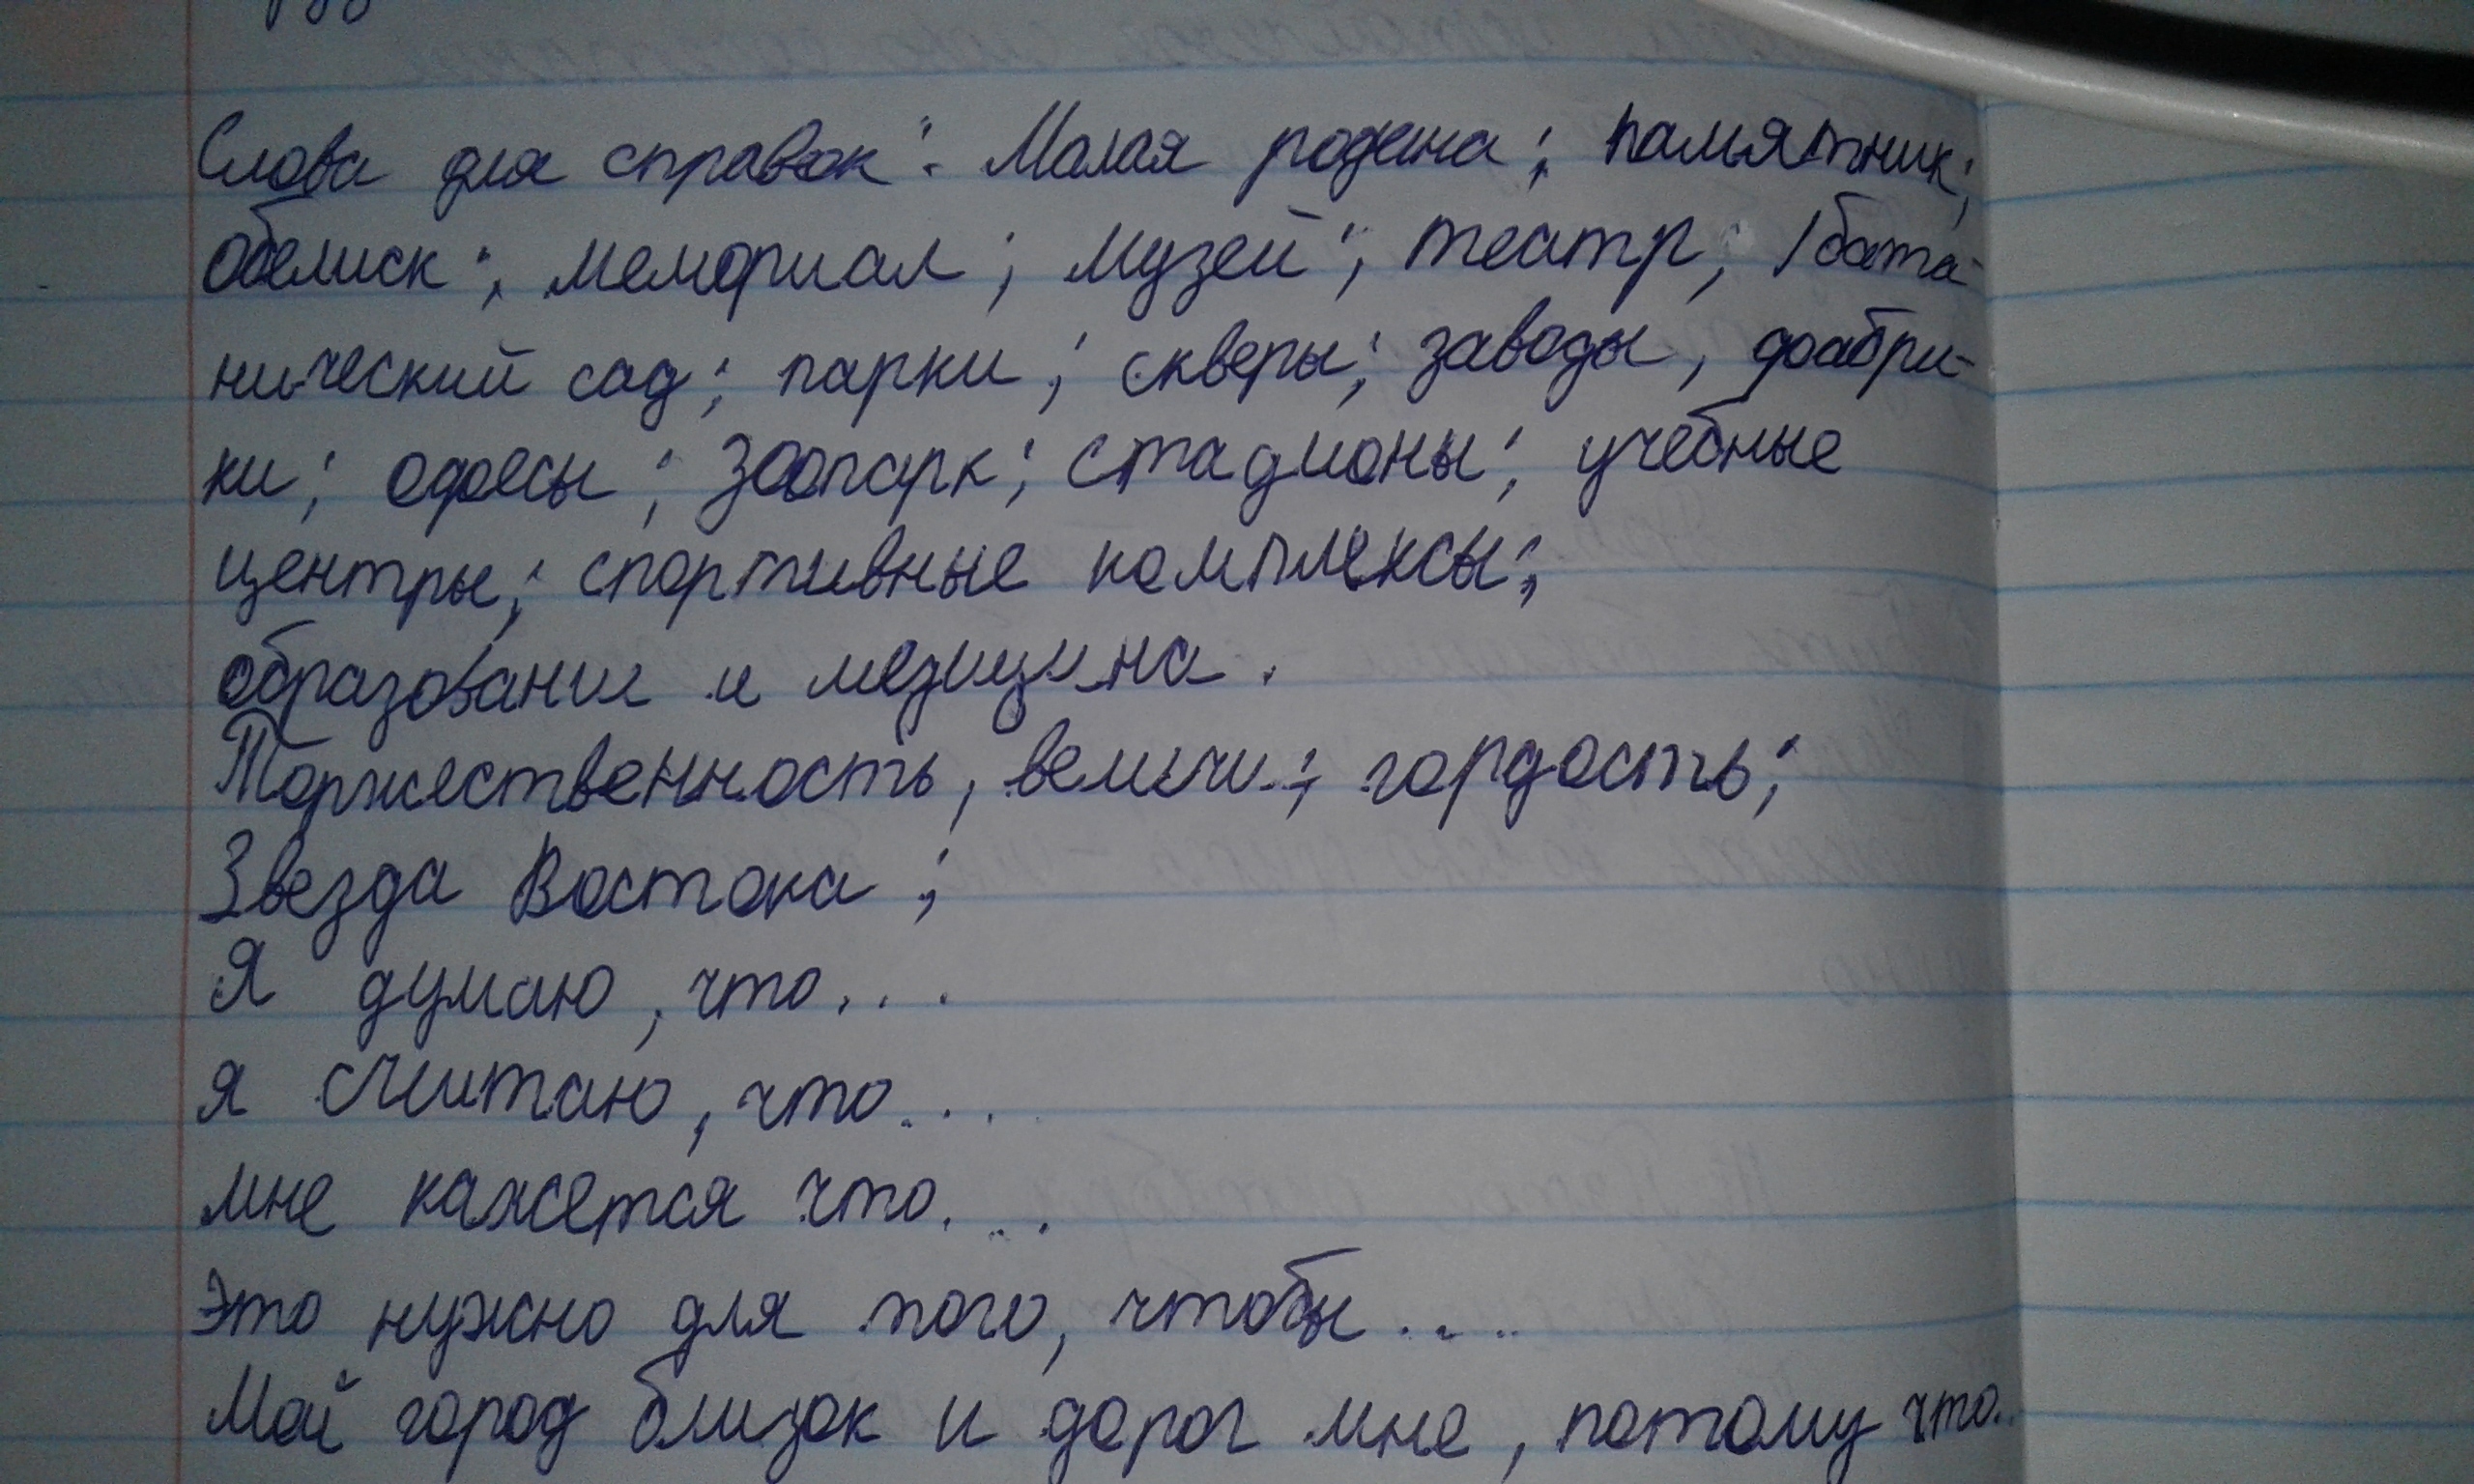 Слова для справок: Малая родина; памятник;
обелиск; мемориал; музей; театр; /бата-
нический сад; парки; скверы; заводы, фабри-
ки; офисы; зоопарк; стадионы; учебные
центры; спортивные комплексы;
образование и медицина.
Торжественность, величие; гордость;
Звезда Востока;
Я думаю, что...
я считаю, что...
мне кажется что....
Это нужно для того, чтобы...
Мой город близок и дорог мне, потому что..